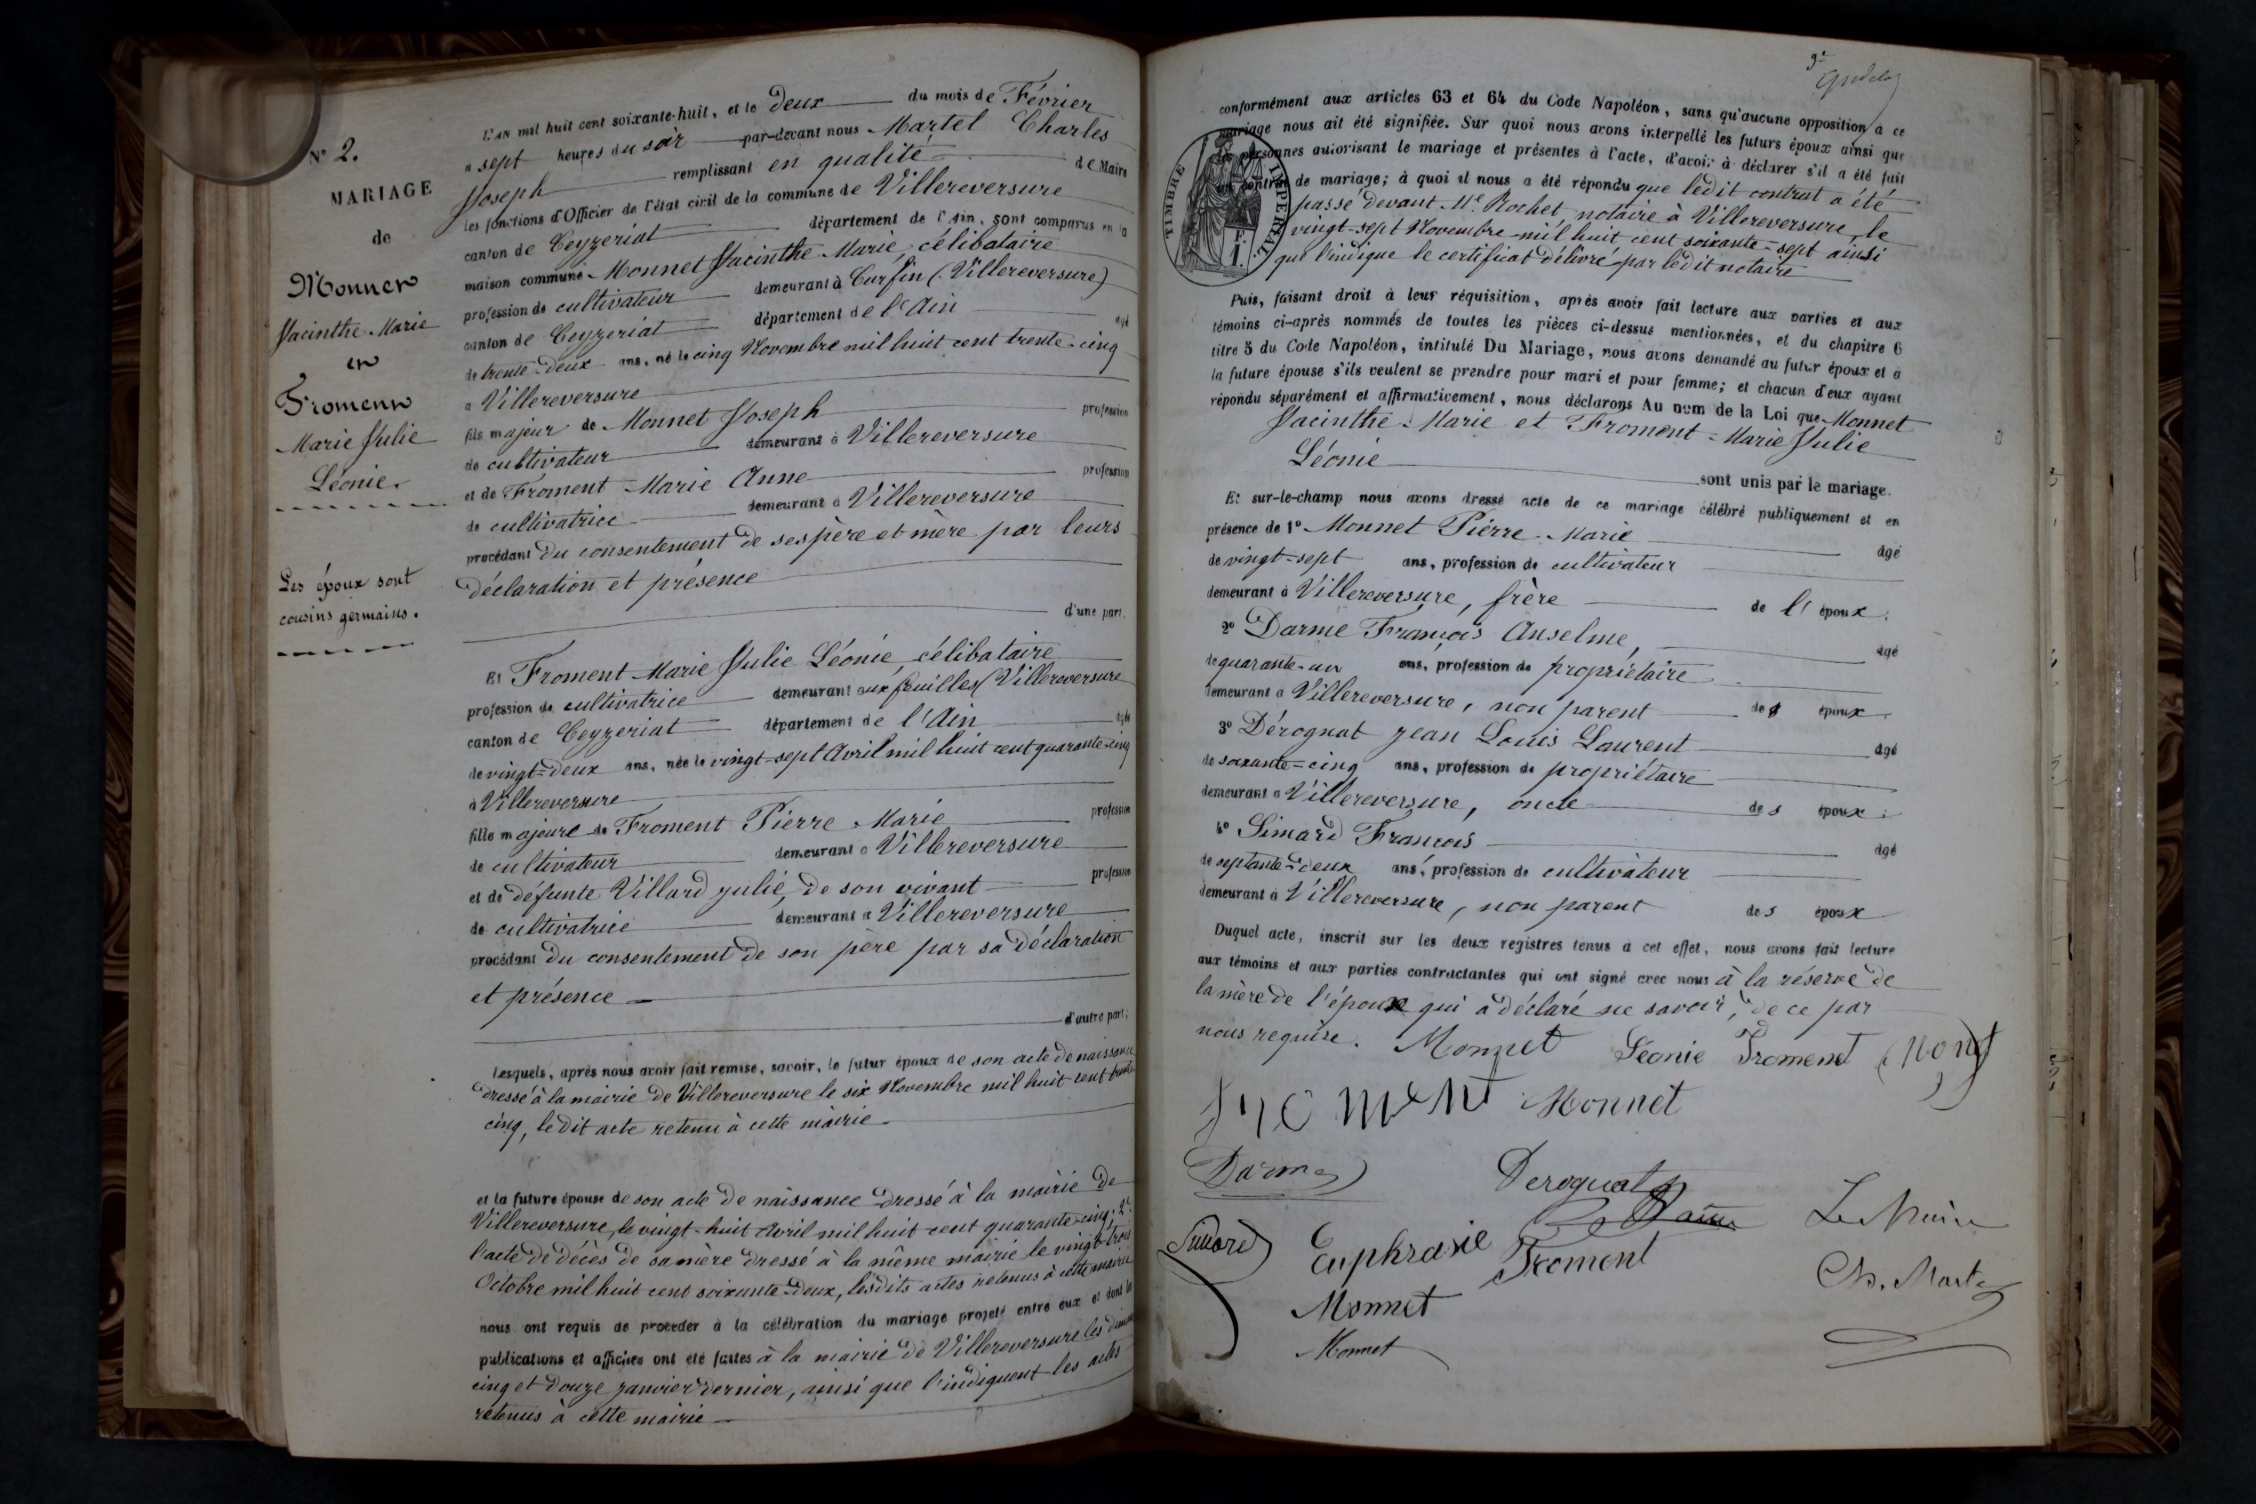 N° 2.
MARIAGE
de
Monnet
Jacinthe Marie
et
Froment
Marie Julie
Léonie.
Les époux sont
cousins germains.
L'AN mil huit cent soixante-huit, et le deux du mois de Février
à sept heures du soir par-devant nous Martel Charles
Joseph remplissant en qualité de Maire
les fonctions d'Officier de l'état civil de la commune de Villereversure
canton de Ceyzeriat département de l'Ain, sont comparus en la
maison commune Monnet Jacinthe Marie, célibataire
profession de cultivateur demeurant à Curfin (Villereversure)
canton de Ceyzeriat département de l'Ain âgé
de trente-deux ans, né le cinq Novembre mil huit cent trente-cinq
à Villereversure
fils majeur de Monnet Joseph profession
de cultivateur demeurant à Villereversure
et de Froment Marie Anne profession
de cultivatrice demeurant à Villereversure
procédant du consentement de ses père et mère par leurs
déclaration et présence
d'une part.
Et Froment Marie Julie Léonie, célibataire
profession de cultivatrice demeurant aux feuilles (Villereversure
canton de Ceyzeriat département de l'Ain âgée
de vingt-deux ans, née le vingt-sept Avril mil huit cent quarante-cinq
à Villereversure
fille majeure de Froment Pierre Marie profession
de cultivateur demeurant à Villereversure
et de défunte Villard Julie, de son vivant profession
de cultivatrice demeurant à Villereversure
procédant du consentement de son père par sa déclaration
et présence
d'autre part;
Lesquels, après nous avoir fait remise, savoir, le futur époux de son acte de naissance
dressé à la mairie de Villereversure le six Novembre mil huit cent trente
cinq, ledit acte retenu à cette mairie
et la future épouse de son acte de naissance dressé à la mairie de
Villereversure, le vingt-huit Avril mil huit cent quarante-cinq; 2°
l'acte de décès de sa mère dressé à la même mairie le vingt-trois
Octobre mil huit cent soixante-deux, lesdits actes retenus à cette mairie
nous ont requis de procéder à la célébration du mariage projeté entre eux et dont les
publications et affiches ont été faites à la mairie de Villereversure les
cinq et douze janvier dernier, ainsi que l'indiquent les actes
retenus à cette mairie
conformément aux articles 63 et 64 du Code Napoléon, sans qu'aucune opposition à ce
mariage nous ait été signifiée. Sur quoi nous avons interpellé les futurs époux ainsi que
personnes autorisant le mariage et présentes à l'acte, d'avoir à déclarer s'il a été fait
un contrat de mariage; à quoi il nous a été répondu que ledit contrat a été
passé devant Me Rochet notaire à Villereversure, le
vingt-sept Novembre mil huit cent soixante-sept ainsi
que l'indique le certificat délivré par ledit notaire
TIMBRE IMPERIAL
F.
1.
Puis, faisant droit à leur réquisition, après avoir fait lecture aux parties et aux
témoins ci-après nommés de toutes les pièces ci-dessus mentionnées, et du chapitre 6
titre 5 du Code Napoléon, intitulé Du Mariage, nous avons demandé au futur époux et à
la future épouse s'ils veulent se prendre pour mari et pour femme; et chacun d'eux ayant
répondu séparément et affirmativement, nous déclarons Au nom de la Loi que Monnet
Jacinthe Marie et Froment Marie Julie
Léonie
sont unis par le mariage.
Et sur-le-champ nous avons dressé acte de ce mariage célébré publiquement et en
présence de 1° Monnet Pierre Marie âgé
de vingt-sept ans, profession de cultivateur
demeurant à Villereversure, frère de l'époux.
2° Darme François Anselme, âgé
de quarante-un ans, profession de propriétaire
demeurant à Villereversure, non parent des époux.
3° Dérognat Jean Louis Laurent âgé
de soixante-cinq ans, profession de propriétaire
demeurant à Villereversure, oncle des époux.
4° Simard François âgé
de septante-deux ans, profession de cultivateur
demeurant à Villereversure, non parent des époux
Duquel acte, inscrit sur les deux registres tenus à cet effet, nous avons fait lecture
aux témoins et aux parties contractantes qui ont signé avec nous à la réserve de
la mère de l'époux qui a déclaré ne savoir, de ce par
nous requise. Monnet Léonie Froment
froment Monnet
Darme
Derognat
Simard Euphrasie Froment Le Maire
Monnet Ch. Martel
Monnet